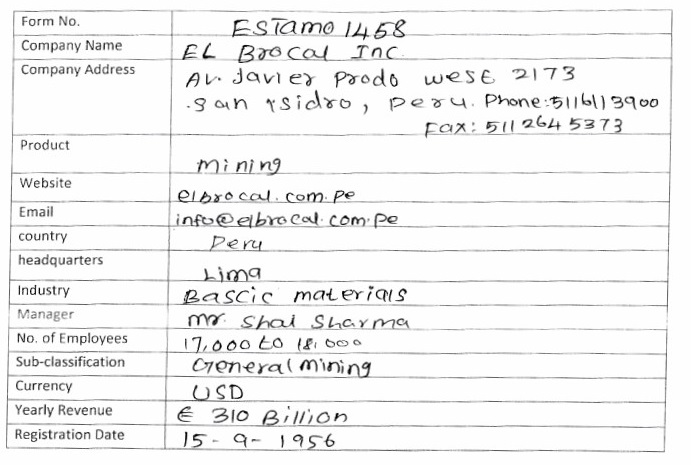 Form No. ESTamo 1458
Company Name EL Brocal Inc.
Company Address Av. Javier Prodo west 2173
.san Isidro, peru. Phone:5116113900
Fax: 511 264 5373
Product mining
Website elbrocal.com.pe
Email info@elbrocal.com.pe
country Peru
headquarters Lima
Industry Bascic materials
Manager mr. Shal Sharma
No. of Employees 17,000 to 18,000
Sub-classification General mining
Currency USD
Yearly Revenue € 310 Billion
Registration Date 15-9-1956